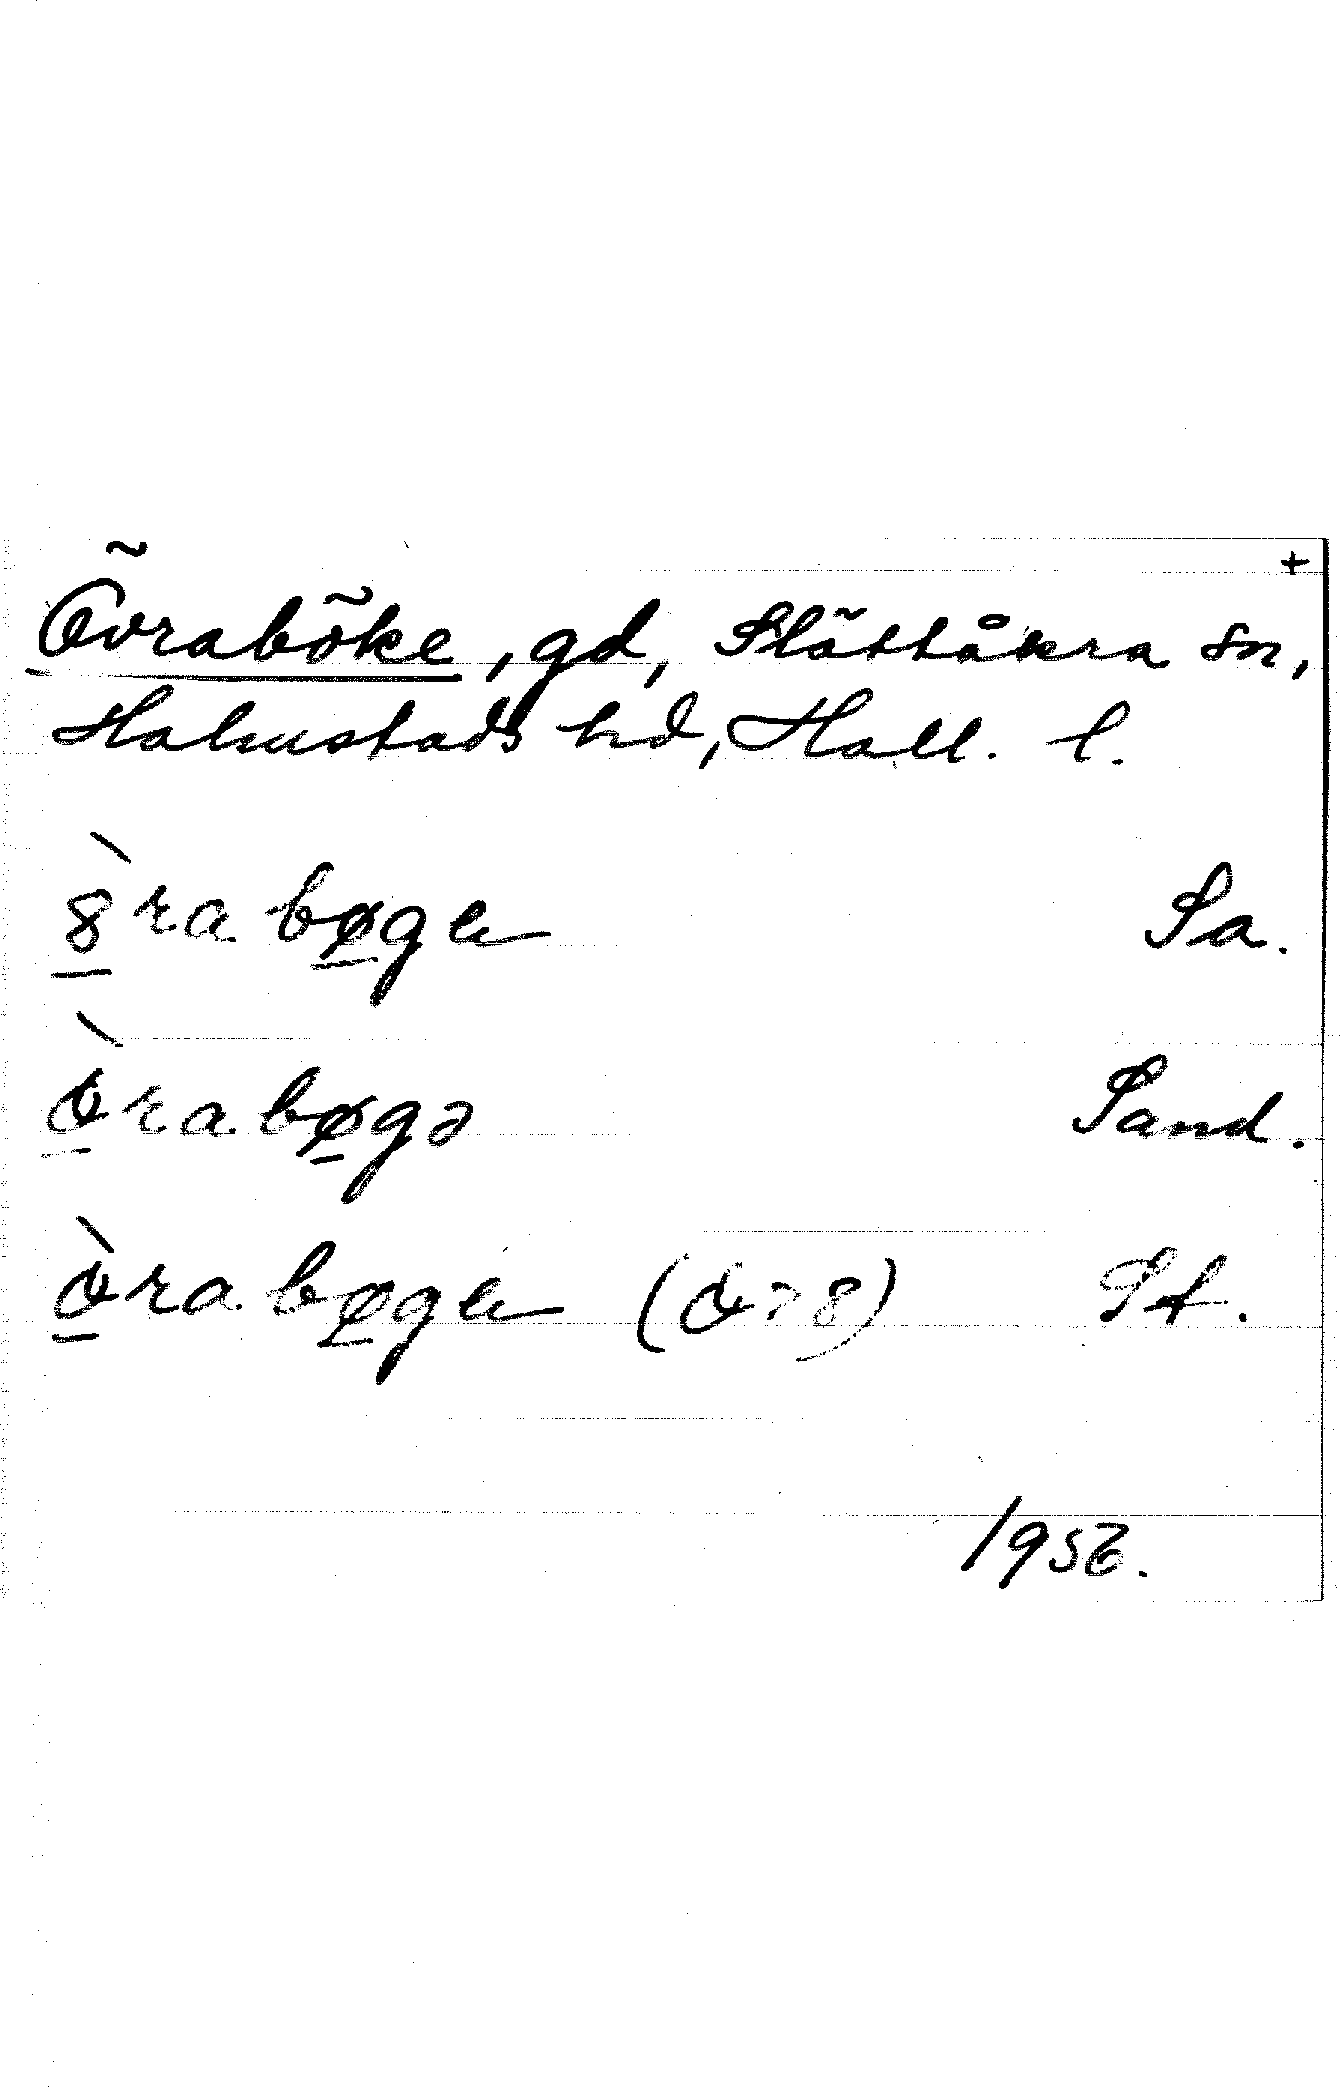 +
Övraböke, gd, Slättåkra sn,
Halmstads hd, Hall. l.
8̀ra bøge Sa.
òrabøgə Sand.
òra bøge (o > 8) St.
1956.